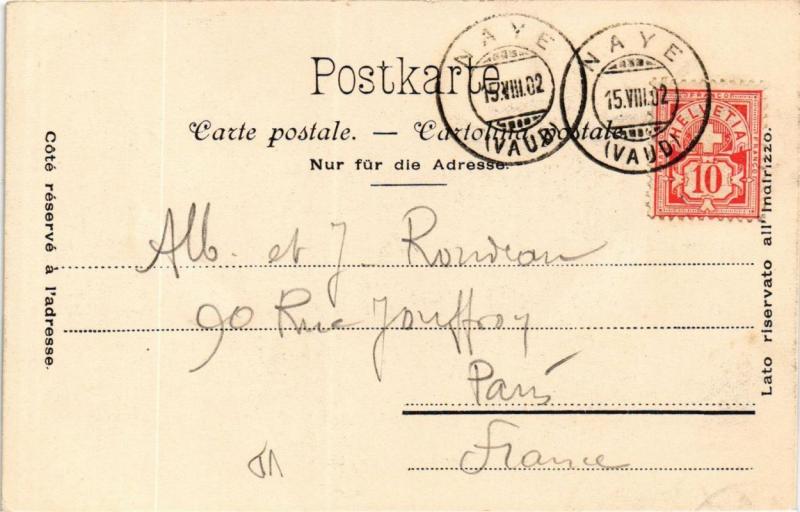 NAYE
15.VIII.02
(VAUD)
NAYE
15.VIII.02
(VAUD)
Postkarte
Carte postale. — Cartolina postale
Nur für die Adresse.
FRANCO
HELVETIA
10
Côté réservé à l'adresse.
Lato riservato all'Indirizzo.
Alb. et J. Rondeau
90 Rue Jouffroy
Paris
France